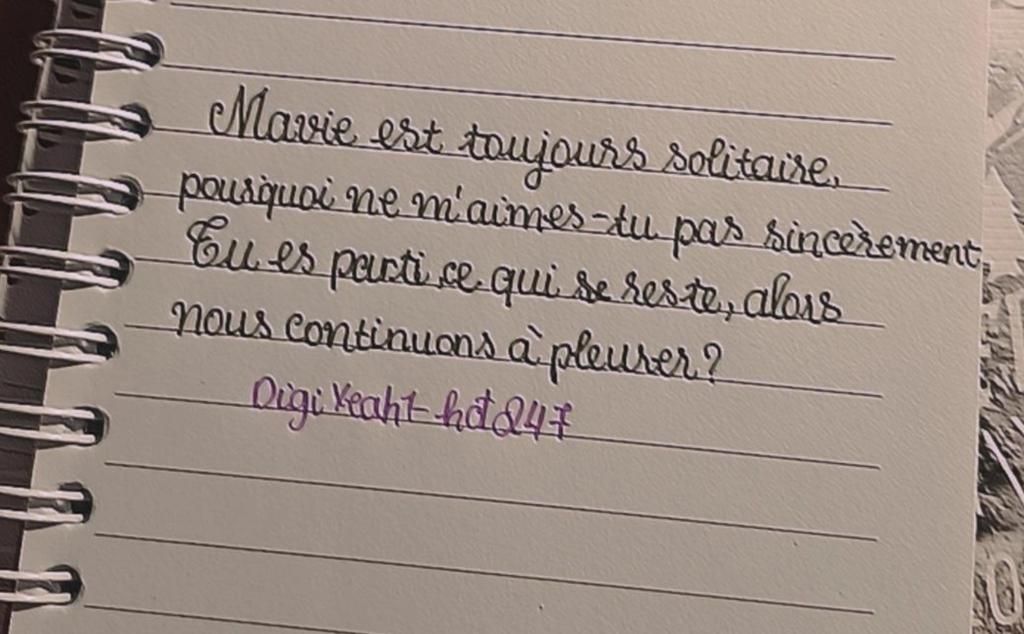 Mavie est toujours solitaire,
pourquoi ne m'aimes-tu pas sincèrement,
Tu es parti, ce qui se reste, alors
nous continuons à pleurer?
DigiYeah1-hd247